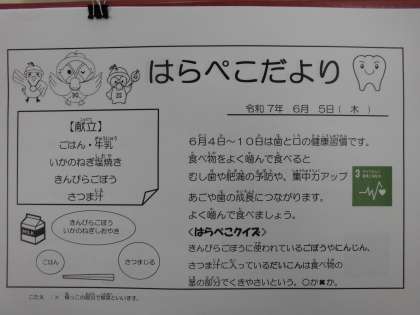 はらぺこだより
令和7年 6月 5日( 木 )
【献立】
ごはん・牛乳
いかのねぎ塩焼き
きんぴらごぼう
さつま汁
6月4日〜10日は歯と口の健康習慣です。
食べ物をよく噛んで食べると
むし歯や肥満の予防や、集中力アップ
あごや歯の成長につながります。
よく噛んで食べましょう。
3
<はらぺこクイズ>
きんぴらごぼうに使われているごぼうやにんじん、
さつま汁に入っているだいこんは食べ物の
茎の部分でくきやさいという。○か✖か。
きんぴらごぼう
いかのねぎしおやき
MILK
ごはん
さつまじる
こたえ : × 根っこの部分で根菜といいます。